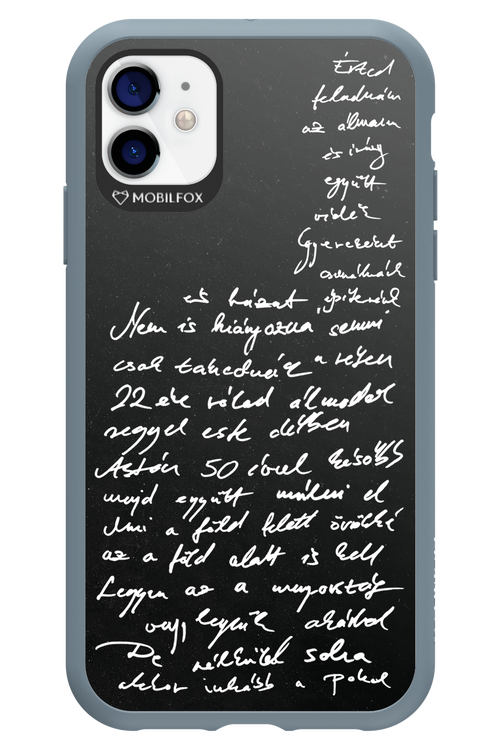 MOBILFOX
Érted
feladnám
az álmom
és így
együtt
Gyerekeket
csinálnánk
és házat építenénk
Nem is hiányozna semmi
csak takednéz a régen
22 éve rólad álmodok
reggel este délben
Aztán 50 évvel később
majd együtt múlni el
Ami a föld felett örökké
az a föld alatt is kell
Legyen az a mennyország
vagy legyünk akárhol
De nélküled soha
akkor inkább a pokol